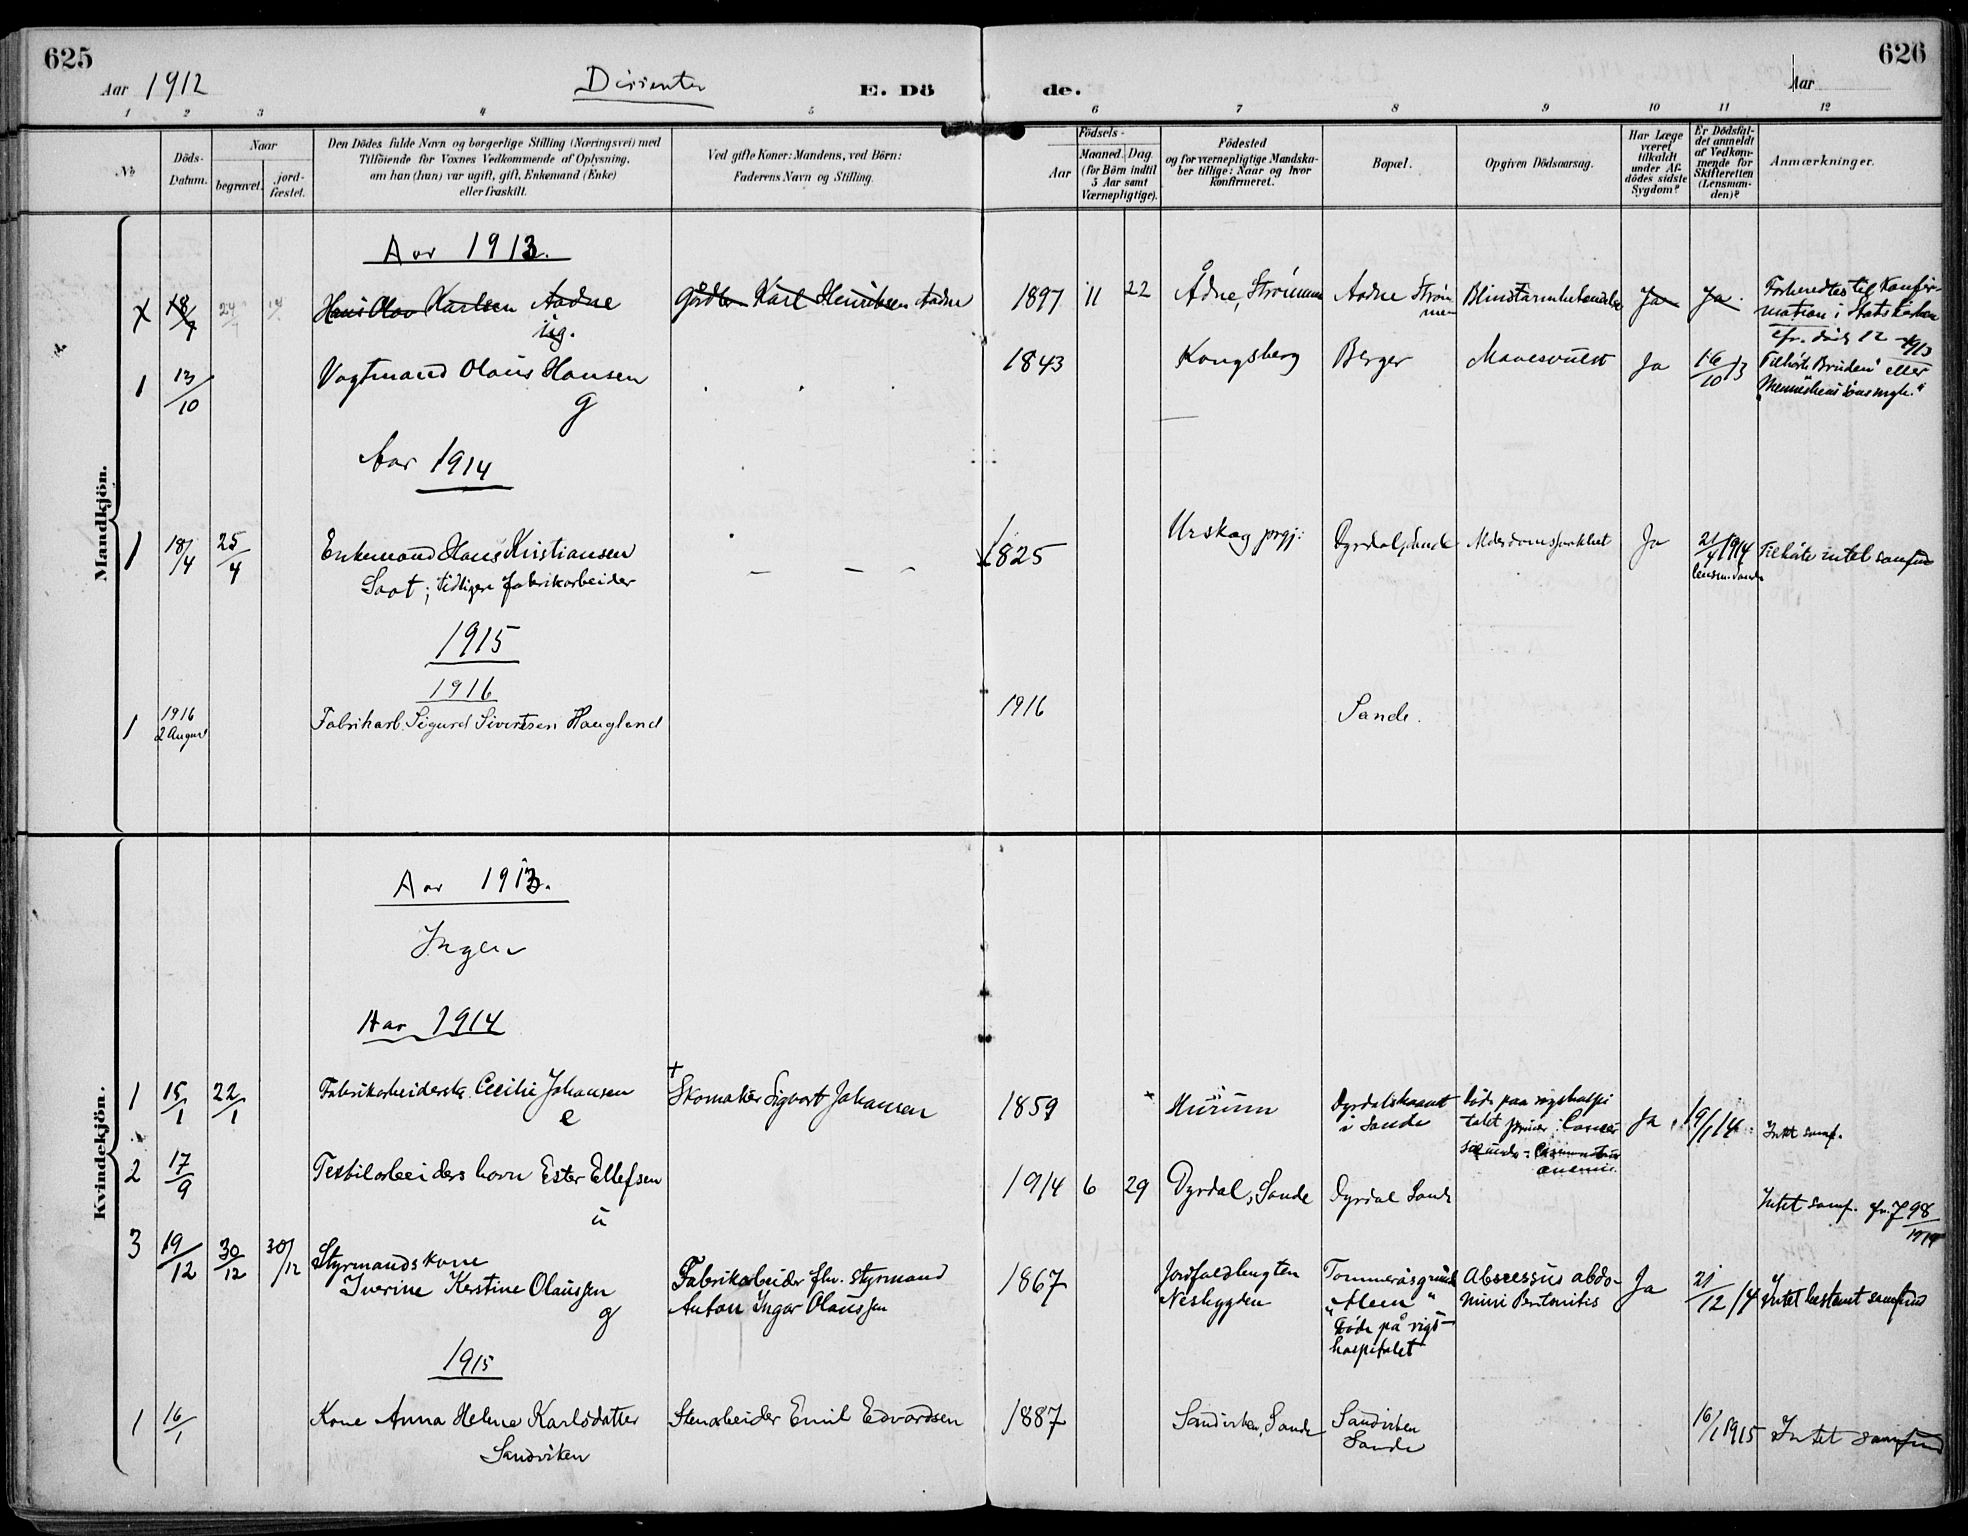 625
626
Aar 1912
Dissenter
E. Dö de.
Aar
1 2 3 4 5 6 7 8 9 10 11 12
No
Döds-Datum.
Naar
begravet.
jord-fæstet.
Den Dödes fulde Navn og borgerlige Stilling (Næringsvei) med
Tilföiende for Voxnes Vedkommende af Oplysning,
om han (hun) var ugift, gift, Enkemand (Enke)
eller fraskilt.
Ved gifte Koner: Mandens, ved Börn:
Faderens Navn og Stilling.
Födsels-
Aar
Maaned. Dag
(for Börn indtil
5 Aar samt
Værnepligtige).
Födested
og for værnepligtige Mandska-
ber tillige: Naar og hvor
konfirmeret.
Bopæl.
Opgiven Dödsaarsag.
Har Læge
været
tilkaldt
under Af-
dödes sidste
Sygdom?
Er Dödsfal-
det anmeldt
af Vedkom-
mende for
Skifteretten
(Lensman-
den)?
Anmærkninger.
Mandkjön.
Aar 1913.
Hans Olav Karlsen Aadne
ug.
Gårdbr Karl Henriksen Aadne
1897 11 22
Ådne, Strømmen
Aadne Strøm
men
Ja
Ja.
Forberedtes til Konfir-
mation i Statskirken
1 13/10
Vogtmand Olaus Hansen
g
1843
Kongsberg
Berger
Mavesvulst
Ja
16/10 13
Tilhørte Bruden eller
Aar 1914
1 18/4 25/4
Enkemand Hans Kristiansen
Saot; tidligere fabrikarbeider
1825
Urskog prgj:
Dyrdal, Sande
Ja
21/4 1914
lensm. Sande
Tilhørte intet samfund
1915
1916
1 1916
2 August
Fabrikarb. Sigurd Sivertsen Haugland
1916
Sande.
Kvindekjön.
Aar 1913.
Ingen
Aar 1914
1 15/1 22/1
Fabrikarbeiderske Cecilie Johansen
e
+
Skomaker Sigvart Johansen
1859
Hurum
Dyrdalskaant
i Sande
Døde paa rigshospi
talet primær: Cancer
Ja
19/1 14
Intet samf.
2 17/9
Textilarbeiders barn Ester Ellefsen
u
1914 6 29
Dyrdal, Sande
Dyrdal Sande
Intet samf.
3 19/12 30/12 30/12
Styrmandskone
Iverine Kerstine Olaussen
g
Fabrikarbeider fhv. styrmand
Anton Inger Olaussen
1867
Nesbygden
Døde på rigs-
hospitalet
Abscessus abdo-
mini Peritonitis
Ja
21/12 14
Intet bestemt samfund
1915
1 16/1
Kone Anna Helene Karlsdatter
Sandviken
Stenarbeider Emil Edvardsen
1887
Sandviken, Sande
Sandviken
Sande
16/1 1915
Intet samfund